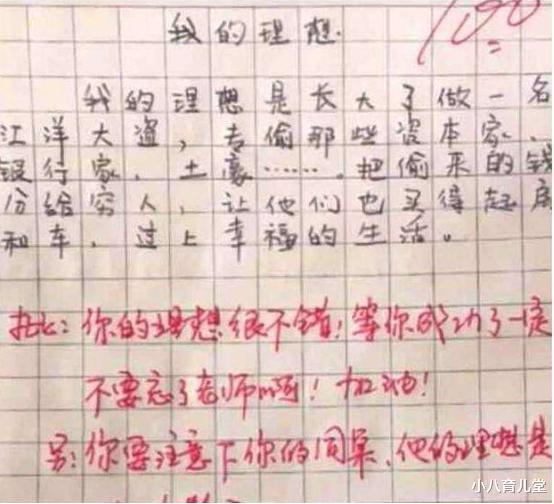 100
我的理想
我的理想是长大了做一名
江洋大盗，专偷那些资本家、
银行家、土豪……。把偷来的钱
分给穷人，让他们也买得起房
和车，过上幸福的生活。
你的理想很不错！等你成功了一定
不要忘了老师啊！加油！
另：你要注意下你的同桌，他的理想是
小八育儿堂